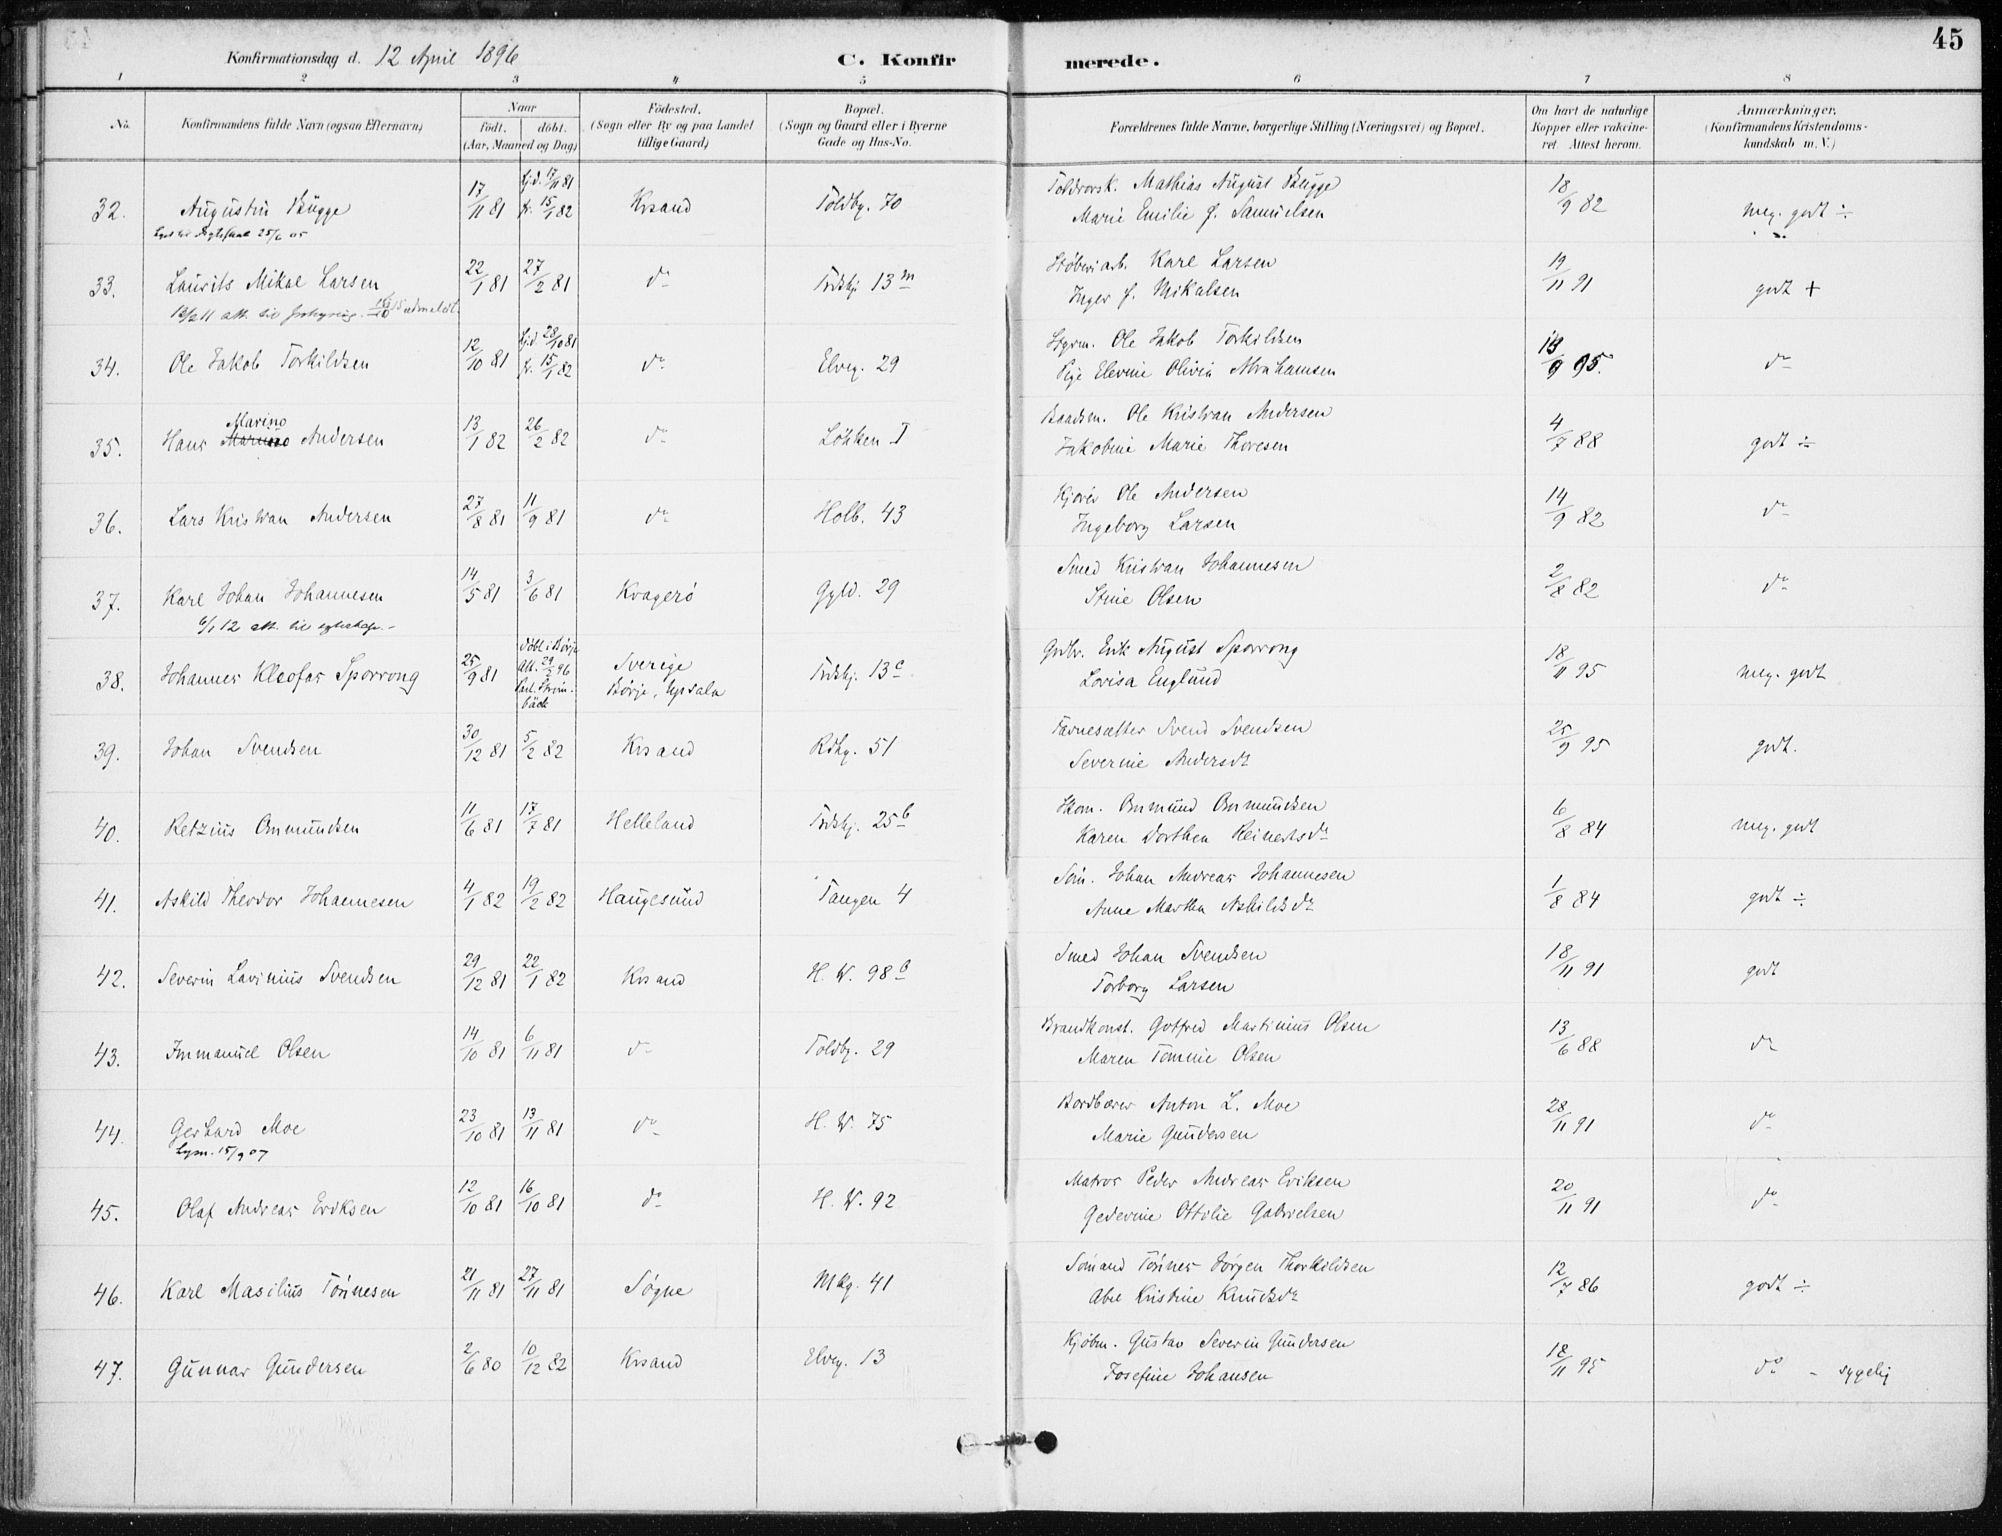 45
Konfirmationsdag d. 12 April 1896
C. Konfirmerede.
1 2 3 4 5 6 7 8
No.
Konfirmandens fulde Navn (ogsaa Efternavn)
Naar
födt. döbt.
(Aar, Maaned og Dag)
Födested.
(Sogn eller By og paa Landet
tillige Gaard)
Bopæl.
(Sogn og Gaard eller i Byerne
Gade og Hus-No.
Forældrenes fulde Navne, borgerlige Stilling (Næringsvei) og Bopæl.
Om havt de naturlige
Kopper eller vakcine-
ret Attest herom.
Anmærkninger.
(Konfirmandens Kristendoms-
kundskab m. V.)
32. Augustin Bugge 17/11 81 hjd. 17/11 81 k. 15/1 82 Krsand Toldbg. 70
Toldrorsk. Mathias August Bugge
Marie Emilie f. Samuelsen 18/9 82 meg. godt ÷
25/6 05
33. Laurits Mikal Larsen 22/1 81 27/2 81 do Trdskj. 13 m
Støberiarb. Karl Larsen
Inger f. Mikalsen 19/11 91 godt +
att. til
34. Ole Jakob Torkildsen 12/10 81 hjd 28/10 81 k. 15/1 82 do Elveg. 29
Styrm. Ole Jakob Torkildsen
Pige Elevine Olivia Abrahamsen 18/9 95. do
35. Hans Marino Andersen 13/1 82 26/2 82 do Løkken I
Baadsm. Ole Kristian Andersen
Jakobine Marie Thoresen 4/7 88 godt ÷
36. Lars Kristian Andersen 27/8 81 11/9 81 do Holb. 43
Kjører Ole Andersen
Ingeborg Larsen 14/9 82 do
37. Karl Johan Johannesen 14/5 81 3/6 81 Kvagerö Gyld. 29
Smed Kristian Johannesen
Stine Olsen 2/8 82 do
6/1 12 att. til
38. Johannes Kleofas Sporrong 25/9 81 Döbt i Börje Att. 29/2 96 Past. Ström-bäck Sverige Börje, Upsala Trdskj. 13 c
Grdbr. Erik August Sporrong
Lovisa Englund 18/11 95 meg. godt
39. Johan Svendsen 30/12 81 5/2 82 Krsand Rdhg. 51
Tavnesætter Svend Svendsen
Severine Andersdt 25/9 95 godt.
40. Retzius Ommundsen 11/6 81 17/7 81 Helleland Trdskj. 25 b
Skom. Ommund Ommundsen
Karen Dorthea Reinertsdt 6/8 84 meg. godt
41. Askild Theodor Johannesen 4/1 82 19/2 82 Haugesund Tangen 4
Søm. Johan Andreas Johannesen
Anne Martha Askildsdt 1/8 84 godt ÷
42. Severin Lavinius Svendsen 29/12 81 22/1 82 Krsand H. W. 98 c
Smed Johan Svendsen
Torborg Larsen 18/11 91 godt
43. Immanuel Olsen 14/10 81 6/11 81 do Toldbg. 29
Brandkonst. Gotfred Martinius Olsen
Maren Tomine Olsen 13/6 88 do
44. Gerhard Moe 23/10 81 13/11 81 do H. W. 75
Bordbærer Anton L. Moe
Marie Gundersen 28/11 91 do
15/9 07
45. Olaf Andreas Eriksen 12/10 81 16/10 81 do H. W. 92
Matros Peder Andreas Eriksen
Gedevine Ottilie Gabrielsen 20/11 91 do
46. Karl Masilius Tønnesen 21/11 81 27/11 81 Søgne Mkg. 41
Sömand Tønnes Jørgen Thorkildsen
Abel Kristine Knudsdt 12/7 86 godt ÷
47. Gunnar Gundersen 2/6 80 10/12 82 Krsand Elveg. 13
Kjøbm. Gustav Severin Gundersen
Josefine Johansen 18/11 95 do - sygelig